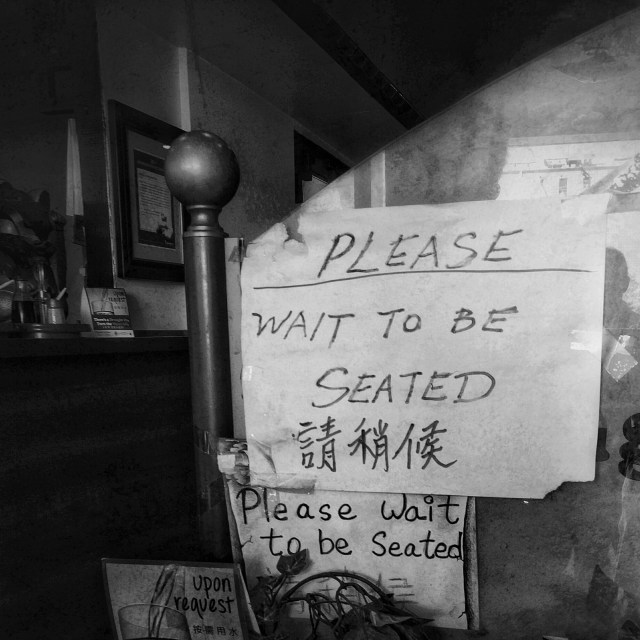 PLEASE
WAIT TO BE
SEATED
請稍候
Please Wait
to be Seated
upon
request
按需用水